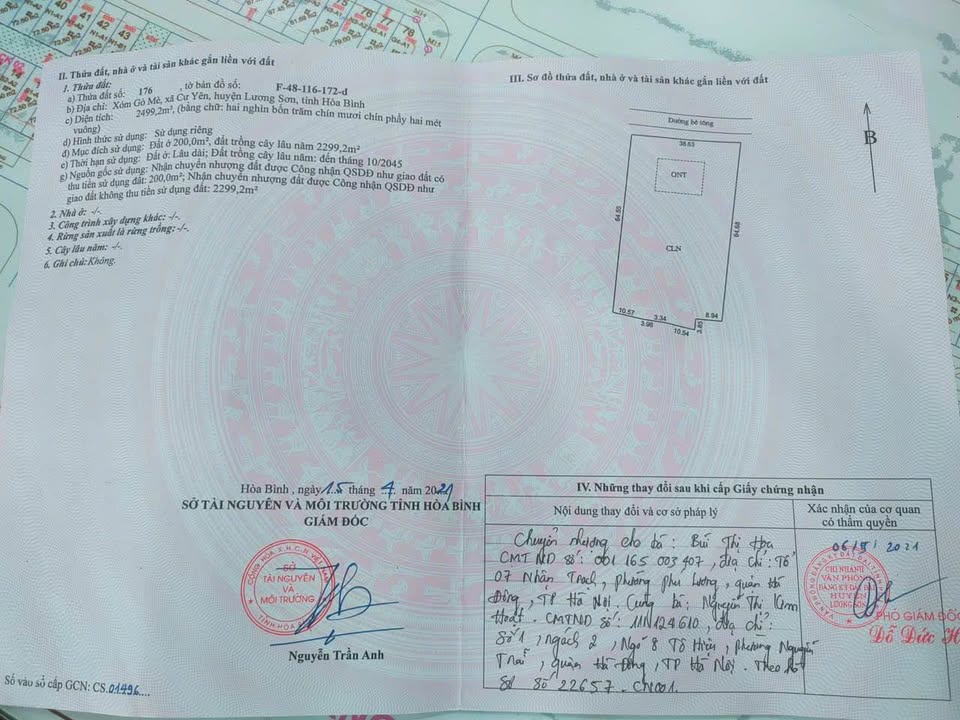 II. Thửa đất, nhà ở và tài sản khác gắn liền với đất
1. Thửa đất:
a) Thửa đất số: 176 , tờ bản đồ số: F-48-116-172-d
b) Địa chỉ: Xóm Gò Mè, xã Cư Yên, huyện Lương Sơn, tỉnh Hòa Bình
c) Diện tích: 2499,2m², (bằng chữ: hai nghìn bốn trăm chín mươi chín phẩy hai mét
vuông)
d) Hình thức sử dụng: Sử dụng riêng
đ) Mục đích sử dụng: Đất ở 200,0m², đất trồng cây lâu năm 2299,2m²
e) Thời hạn sử dụng: Đất ở: Lâu dài; Đất trồng cây lâu năm: đến tháng 10/2045
g) Nguồn gốc sử dụng: Nhận chuyển nhượng đất được Công nhận QSDĐ như giao đất có
thu tiền sử dụng đất: 200,0m²; Nhận chuyển nhượng đất được Công nhận QSDĐ như
giao đất không thu tiền sử dụng đất: 2299,2m²
2. Nhà ở: -/-.
3. Công trình xây dựng khác: -/-.
4. Rừng sản xuất là rừng trồng: -/-.
5. Cây lâu năm: -/-.
6. Ghi chú: Không.
III. Sơ đồ thửa đất, nhà ở và tài sản khác gắn liền với đất
Đường bê tông
38.63
ONT
B
64.68
CLN
10.57
3.34
8.94
3.98
10.54
3.85
Hòa Bình , ngày 15 tháng 4 năm 2021
SỞ TÀI NGUYÊN VÀ MÔI TRƯỜNG TỈNH HÒA BÌNH
GIÁM ĐỐC
SỞ
TÀI NGUYÊN
VÀ
MÔI TRƯỜNG
Nguyễn Trần Anh
Số vào sổ cấp GCN: CS.01496....
IV. Những thay đổi sau khi cấp Giấy chứng nhận
Nội dung thay đổi và cơ sở pháp lý
Xác nhận của cơ quan
có thẩm quyền
Chuyển nhượng cho bà: Bùi Thị Hoa
CMTND số: 001 165 003 407, địa chỉ: Tổ
07 Nhân Trạch, phường Phú Lương, quận Hà
Đông, TP Hà Nội. Cùng bà: Nguyễn Thị Kim
Hoạt. CMTND số: 111124610, địa chỉ:
Số 1, ngách 2, Ngõ 8 Tô Hiệu, phường Nguyễn
Trãi, quận Hà Đông, TP Hà Nội. Theo
số 22657.CN001.
06/5/2021
CHI NHÁNH
VĂN PHÒNG
ĐĂNG KÝ ĐẤT ĐAI
HUYỆN
LƯƠNG SƠN
PHÓ GIÁM ĐỐC
Đỗ Đức